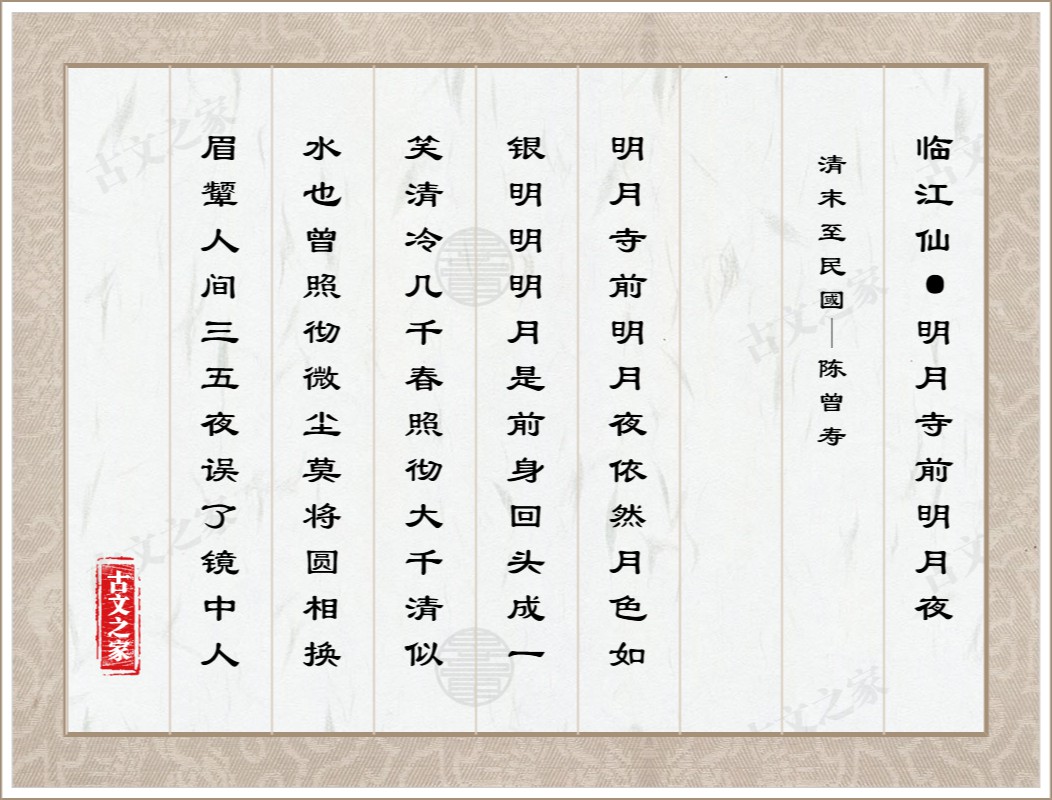 临江仙●明月寺前明月夜
清末至民國—陈曾寿
明月寺前明月夜依然月色如
银明明明月是前身回头成一
笑清冷几千春照彻大千清似
水也曾照彻微尘莫将圆相换
眉颦人间三五夜误了镜中人
古文之家
古文之家
古文之家
古文之家
古文之家